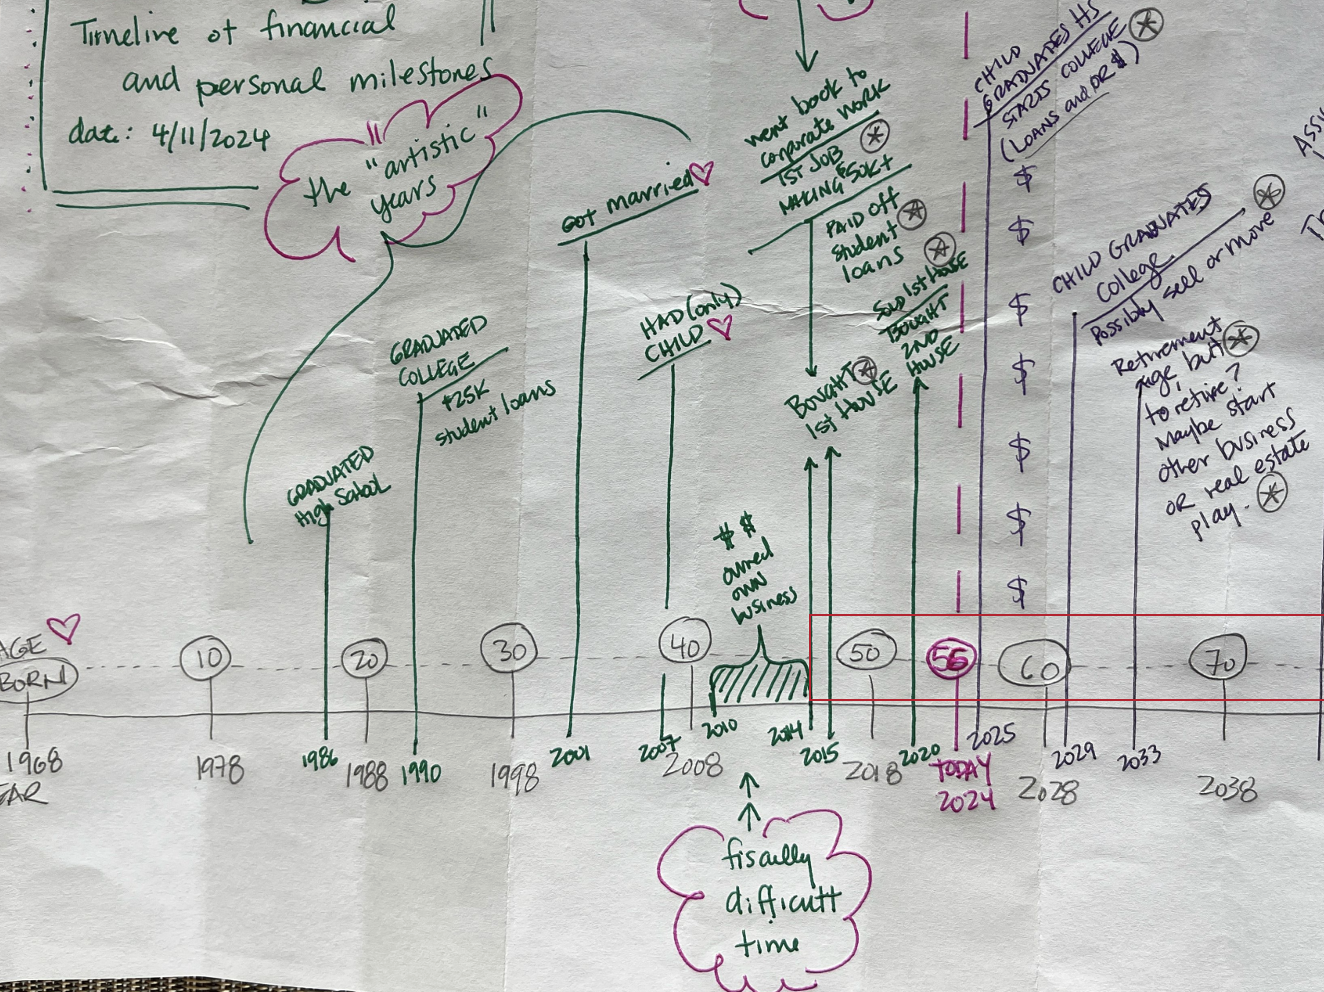 Timeline of financial
and personal milestones
date: 4/11/2024
the "artistic"
years
GRADUATED
High School
GRADUATED
COLLEGE
$25K
student loans
GOT married
HAD (only)
CHILD
$ $
owned
own
business
went back to
corporate work
1ST JOB
MAKING $50K+
PAID OFF
student
loans
BOUGHT
1st HOUSE
SOLD 1st HOUSE
BOUGHT
2ND
HOUSE
CHILD
GRADUATES HS
STARTS COLLEGE
(LOANS and/OR $)
$
$
$
$
$
$
$
CHILD GRADUATES
College
Possibly sell or move
Retirement
age, but
to retire?
Maybe start
other business
OR real estate
play.
AGE
BORN
10
20
30
40
50
56
60
70
1968
1978
1986
1988
1990
1998
2001
2007
2008
2010
2014
2015
2018
2020
TODAY
2024
2025
2028
2029
2033
2038
fiscally
difficult
time